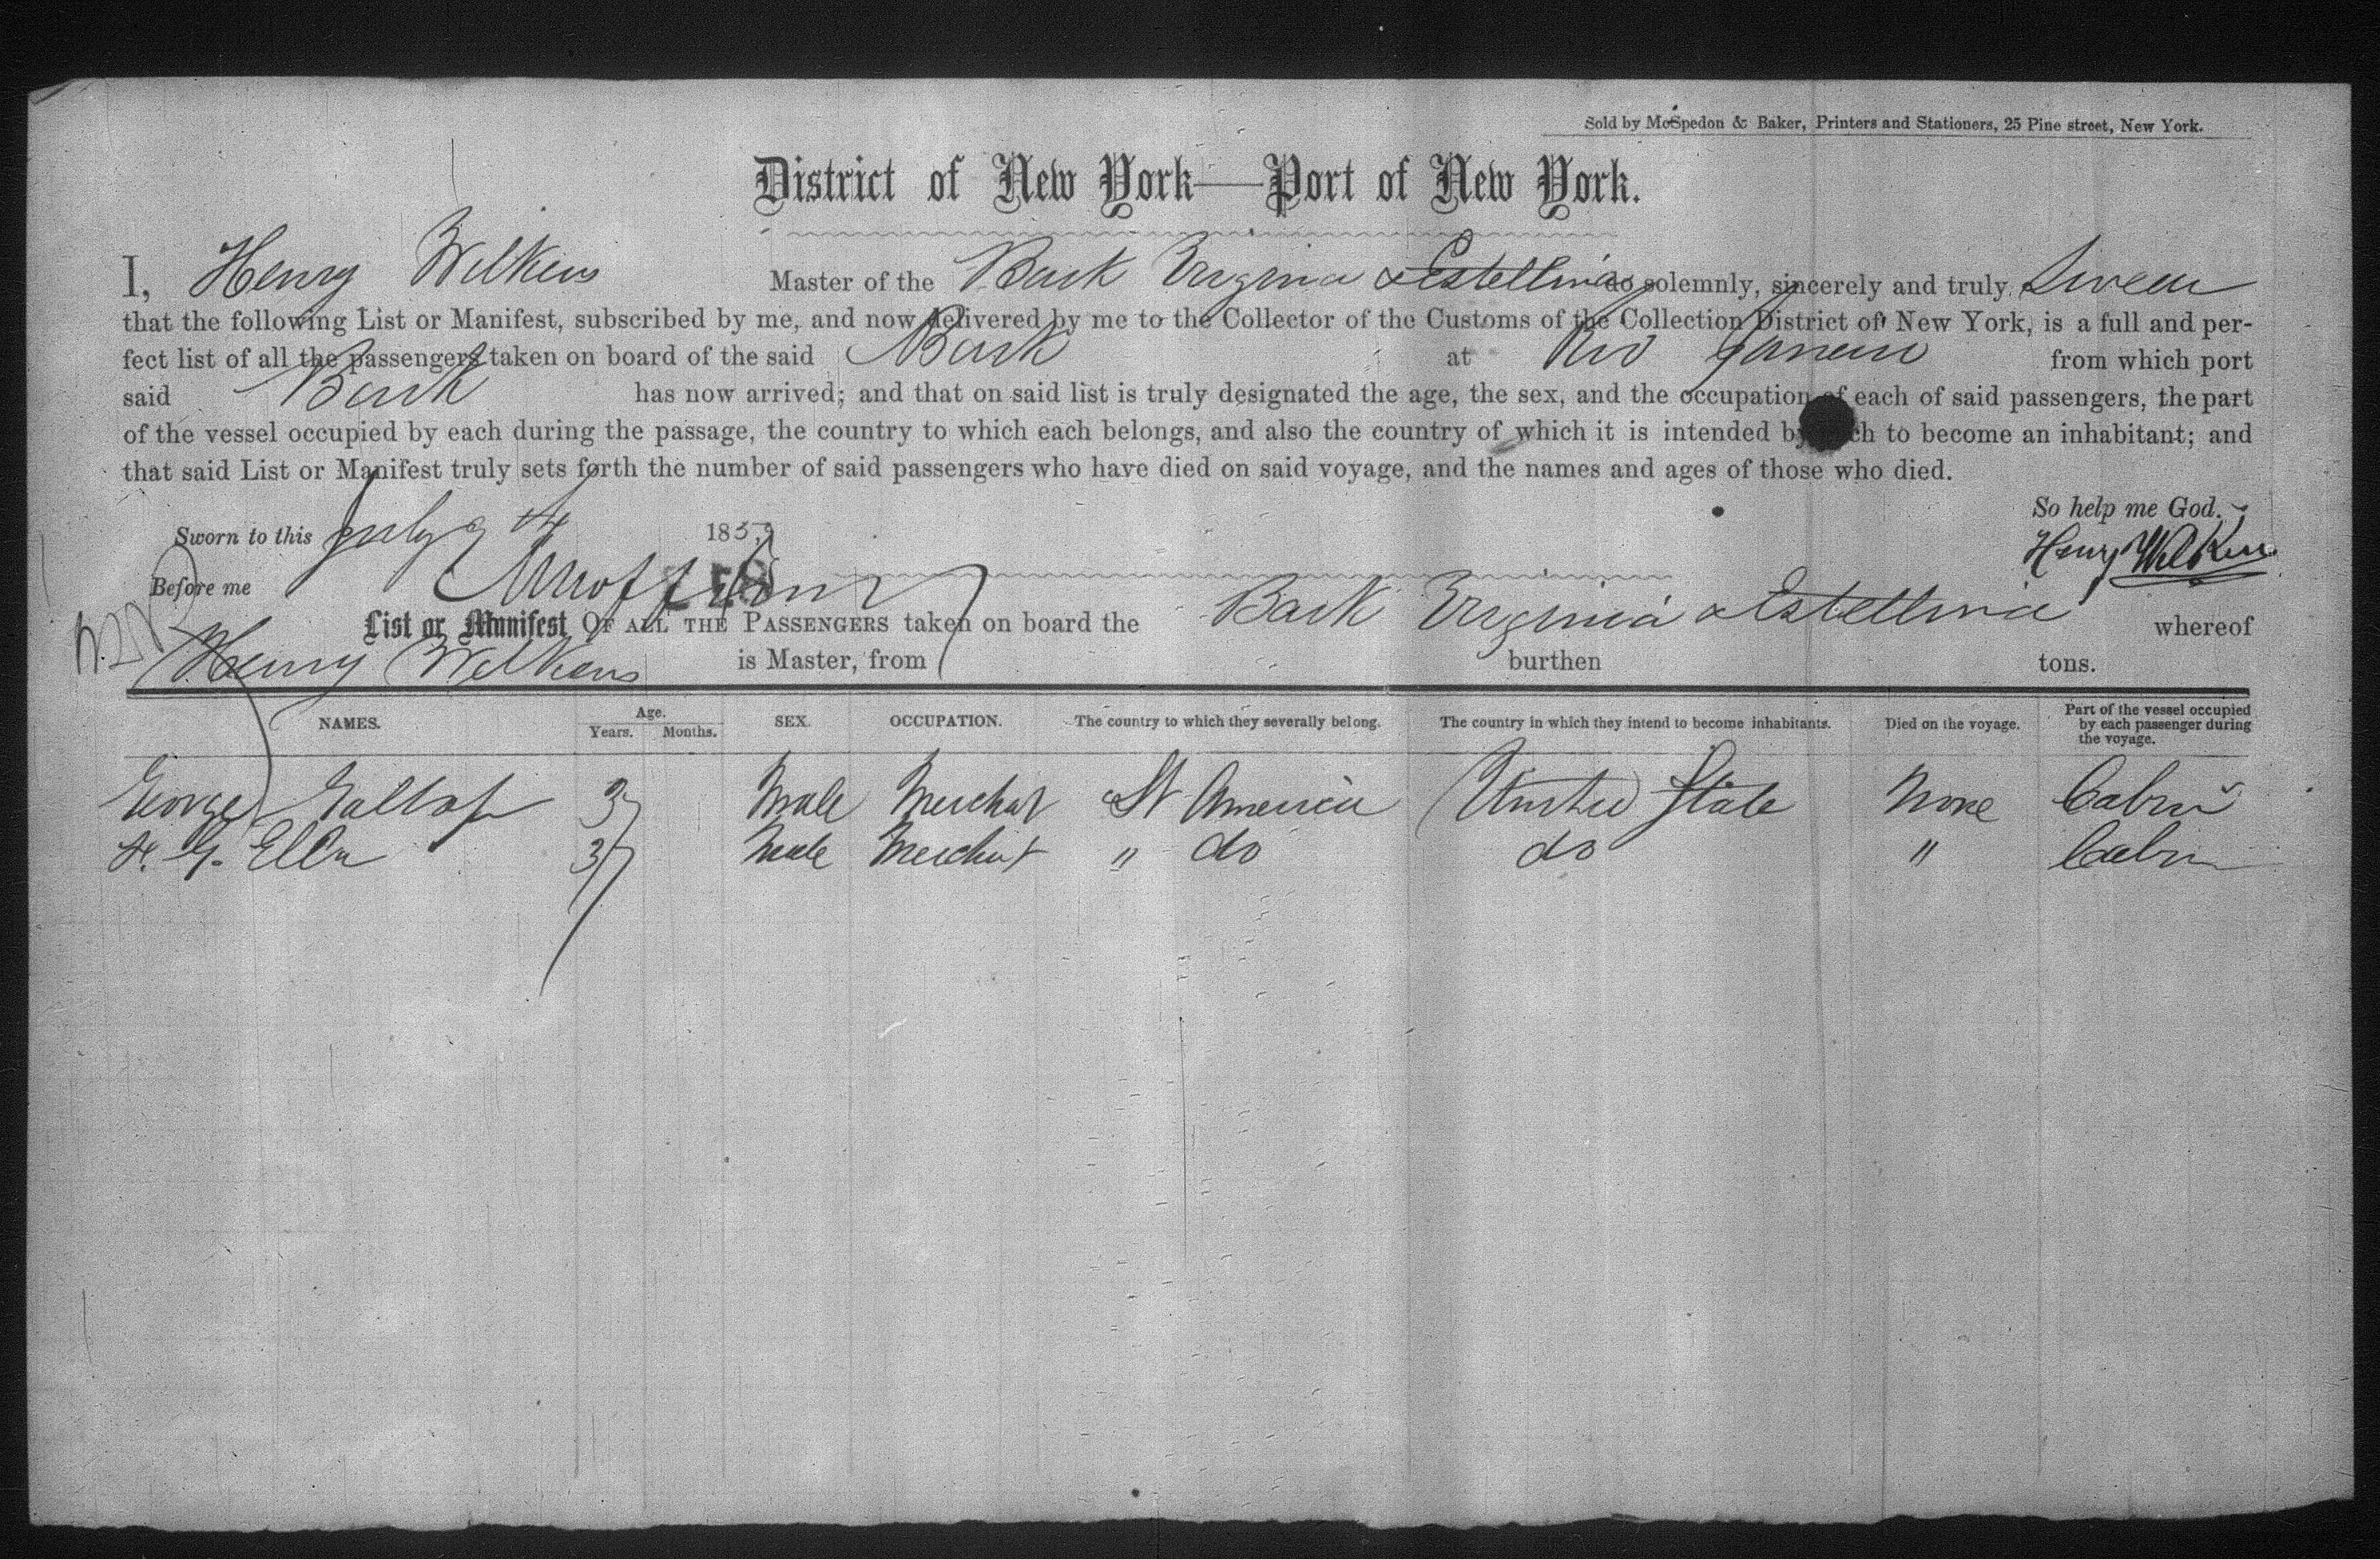 Sold by McSpedon & Baker, Printers and Stationers, 25 Pine street, New York.
District of New York—Port of New York.
I, Henry Wilkens Master of the Bark Virginia & Estellina do solemnly, sincerely and truly Swear
that the following List or Manifest, subscribed by me, and now delivered by me to the Collector of the Customs of the Collection District of New York, is a full and per-
fect list of all the passengers taken on board of the said Bark at Rio Janeiro from which port
said Bark has now arrived; and that on said list is truly designated the age, the sex, and the occupation of each of said passengers, the part
of the vessel occupied by each during the passage, the country to which each belongs, and also the country of which it is intended by to become an inhabitant; and
that said List or Manifest truly sets forth the number of said passengers who have died on said voyage, and the names and ages of those who died.
So help me God.
Sworn to this July 185 Henry Wilkens
Before me
List or Manifest OF ALL THE PASSENGERS taken on board the Bark Virginia & Estellina whereof
Henry Wilkens is Master, from burthen tons.
NAMES. Age. Years. Months. SEX. OCCUPATION. The country to which they severally belong. The country in which they intend to become inhabitants. Died on the voyage. Part of the vessel occupied by each passenger during the voyage.
George Gallop 37 Male Merchat St America United State None Cabin
G. 37 Male Merchat " do do " Cabin